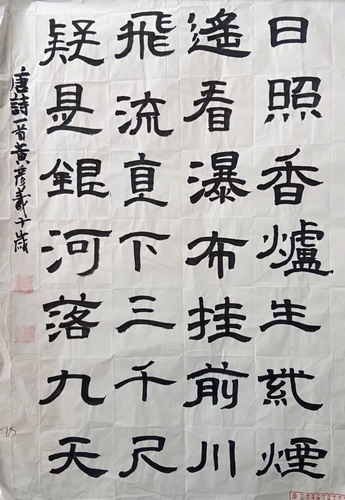 日照香爐生紫煙
遙看瀑布挂前川
飛流直下三千尺
疑是銀河落九天
唐詩一首黃彦義